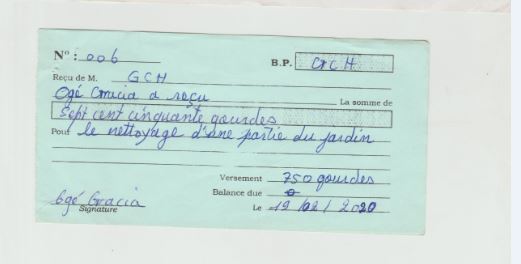 N° : 006
B.P. GCH
Reçu de M. GCH
Ogé Gracia a reçu La somme de
Sept cent cinquante gourdes
Pour le nettoyage d'une partie du jardin
Versement 750 gourdes
Balance due 0
Ogé Gracia
Signature
Le 19 / 02 / 2020